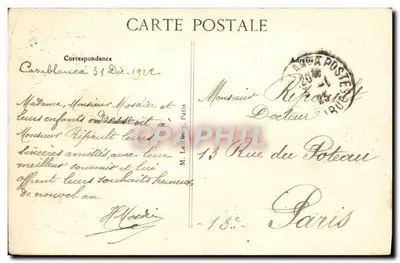 CARTE POSTALE
Correspondance
Adresse
Casablanca 31 Déc. 1922
Madame, Monsieur Mosdier et
leurs enfants à
Monsieur Ripault leurs
sincères amitiés, avec leur
meilleur souvenir et lui
offrent leurs souhaits heureux
de nouvel an
Monsieur Ripault
Docteur
13 Rue du Poteau
- 18e -
Paris
PARIS
POSTES